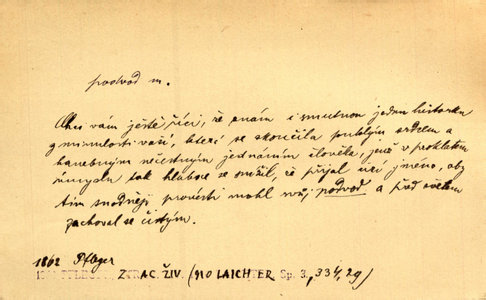 podvod m.
Chci vám ještě říci, že znám i smutnou jednu historku
z minulosti vaší, která se skončila puklým srdcem a
hanebným nečestným jednáním člověka, jenž v prokletém
úmyslu tak hluboce se snížil, že přijal cizí jméno, aby
tím snadněji provésti mohl svůj podvod a před světem
zachoval se čistým.
1862 Pfleger
ZTRAC. ŽIV. (NO LAICHTER, Sp. 3., 334, 29)